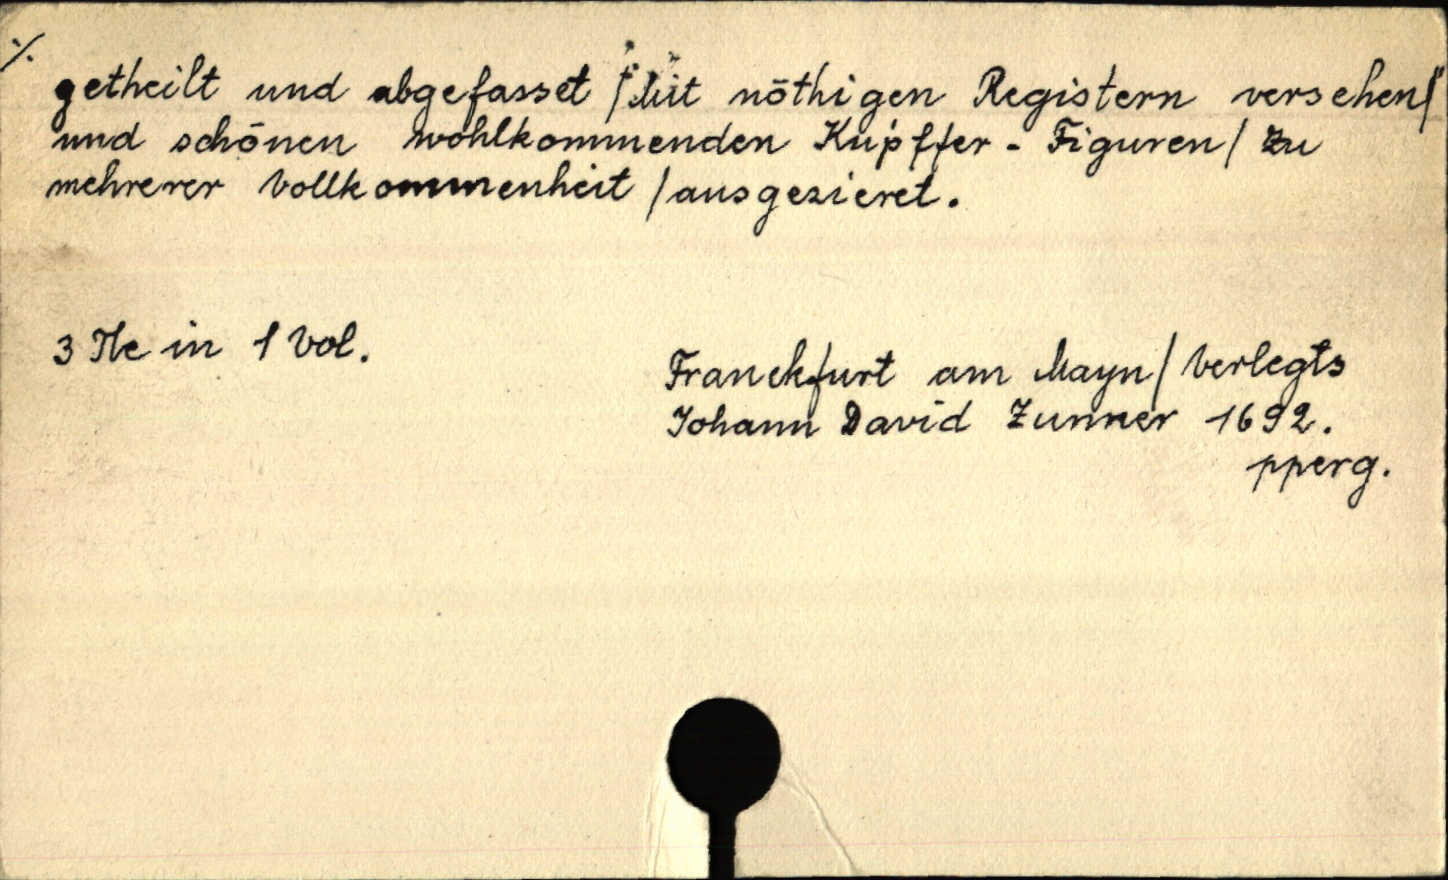 ./.
getheilt und abgefasset / Mit nöthigen Registern versehen /
und schönen wohlkommenden Kupffer - Figuren / zu
mehrerer Vollkommenheit / ausgezieret.
3 Tle in 1 Vol.
Franckfurt am Mayn / Verlegts
Johann David Zunner 1692.
pperg.